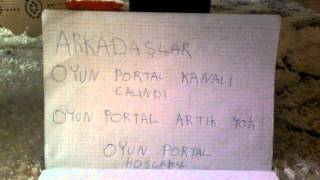 ARKADAŞLAR
OYUN PORTAL KANALI
CALINDI
OYUN PORTAL ARTIK YOK
OYUN PORTAL